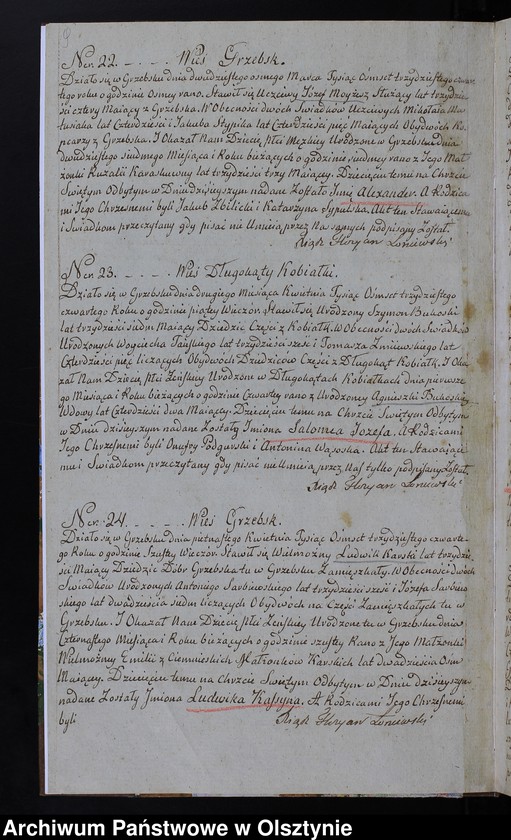 Ner. 22. - . - . Wieś Grzebsk.
Działo się w Grzebsku dnia dwudziestego osmego Marca Tysiąc Osmset trzydziestego czwar
tego roku o godzinie Osmey rano. Stawił się Uczciwy Józef Służący lat trzydzie
sci cztery Maiący z Grzebska. W Obecności dwóch Swiadków Uczciwych Mikołaia Ma
tusiaka lat Czterdzieści i Jakuba Stypika lat Czterdzieści pięć Maiących Obydwóch
z Grzebska. I Okazał Nam Dziecię Płci Męzkiey Urodzone w Grzebsku dnia
dwudziestego siudmego Miesiąca i Roku bieżących o godzinie siudmey rano z Jego Mał
żonki Ruzalii lat trzydzieści trzy Maiącey. Dziecięciu temu na Chrzcie
Swiętym Odbytym w Dniu dzisieyszym nadane Zostało Imię Alexander. A Rodzica
mi Jego Chrzesnemi byli Jakub Zbilicki i Katarzyna Sypulska. Akt ten Stawaiącemu
i Swiadkom przeczytany gdy pisać nie Umieią przez Nas samych podpisany Został.
Xiądz Floryan Łoniewski
Ner. 23. - . - . - Wieś Długokąty Kobiałki.
Działo się w Grzebsku dnia drugiego Miesiąca Kwietnia Tysiąc Osmset trzydziestego
czwartego Roku o godzinie piątey Wieczor. Stawił się Urodzony Szymon Bukoski
lat trzydzieści siudm Maiący Dziedzic Części z Kobiałk. W Obecności dwóch Swiadków
Urodzonych Woyciecha lat trzydzieści sześć i Tomasza Żmiiewskiego lat
Czterdzieści pięć liczących Obydwóch Dziedziców Części z Długokąt Kobiałk. I Oka
zał Nam Dziecię Płci Żeńskiey Urodzone w Długokątach Kobiałkach dnia pierwsze
go Miesiąca i Roku bieżących o godzinie Czwartey rano z Urodzoney Agnieszki Bukoskiey
Wdowy lat Czterdzieści dwa Maiącey. Dziecięciu temu na Chrzcie Swiętym Odbytym
w Dniu dzisieyszym nadane Zostały Imiona Salomea Jozefa. A Rodzicami
Jego Chrzesnemi byli Onufry Podgurski i Antonina Wąsoska. Akt ten Stawaiące
mu i Swiadkom przeczytany gdy pisać nie Umieią przez Nas tylko podpisany Został.
Xiądz Floryan Łoniewski
Ner. 24. - . - . - . Wieś Grzebsk.
Działo się w Grzebsku dnia piętnastego Kwietnia Tysiąc Osmset trzydziestego czwarte
go Roku o godzinie Szustey Wieczor. Stawił się Wielmożny Ludwik Karski lat trzydzie
sci Maiący Dziedzic Dóbr Grzebska tu w Grzebsku Zamięszkały. W Obecności dwóch
Swiadków Urodzonych Antoniego Sarbiewskiego lat trzydzieści sześć i Józefa Sarbiew
skiego lat dwadzieścia siudm liczących Obydwóch na Części Zamięszkałych tu w
Grzebsku. I Okazał Nam Dziecię Płci Żeńskiey Urodzone tu w Grzebsku dnia
Czternastego Miesiąca i Roku bieżących o godzinie szustey Rano z Jego Małżonki
Wielmożney Emilii z Ciemnieskich Małżonków Karskich lat dwadzieścia Osm
Maiącey. Dziecięciu temu na chrzcie Swiętym Odbytym w Dniu dzisieyszym
nadane Zostały Imiona Ludwika Kassyna. A Rodzicami Jego Chrzesnemi
byli Xiądz Floryan Łoniewski
Archiwum Państwowe w Olsztynie